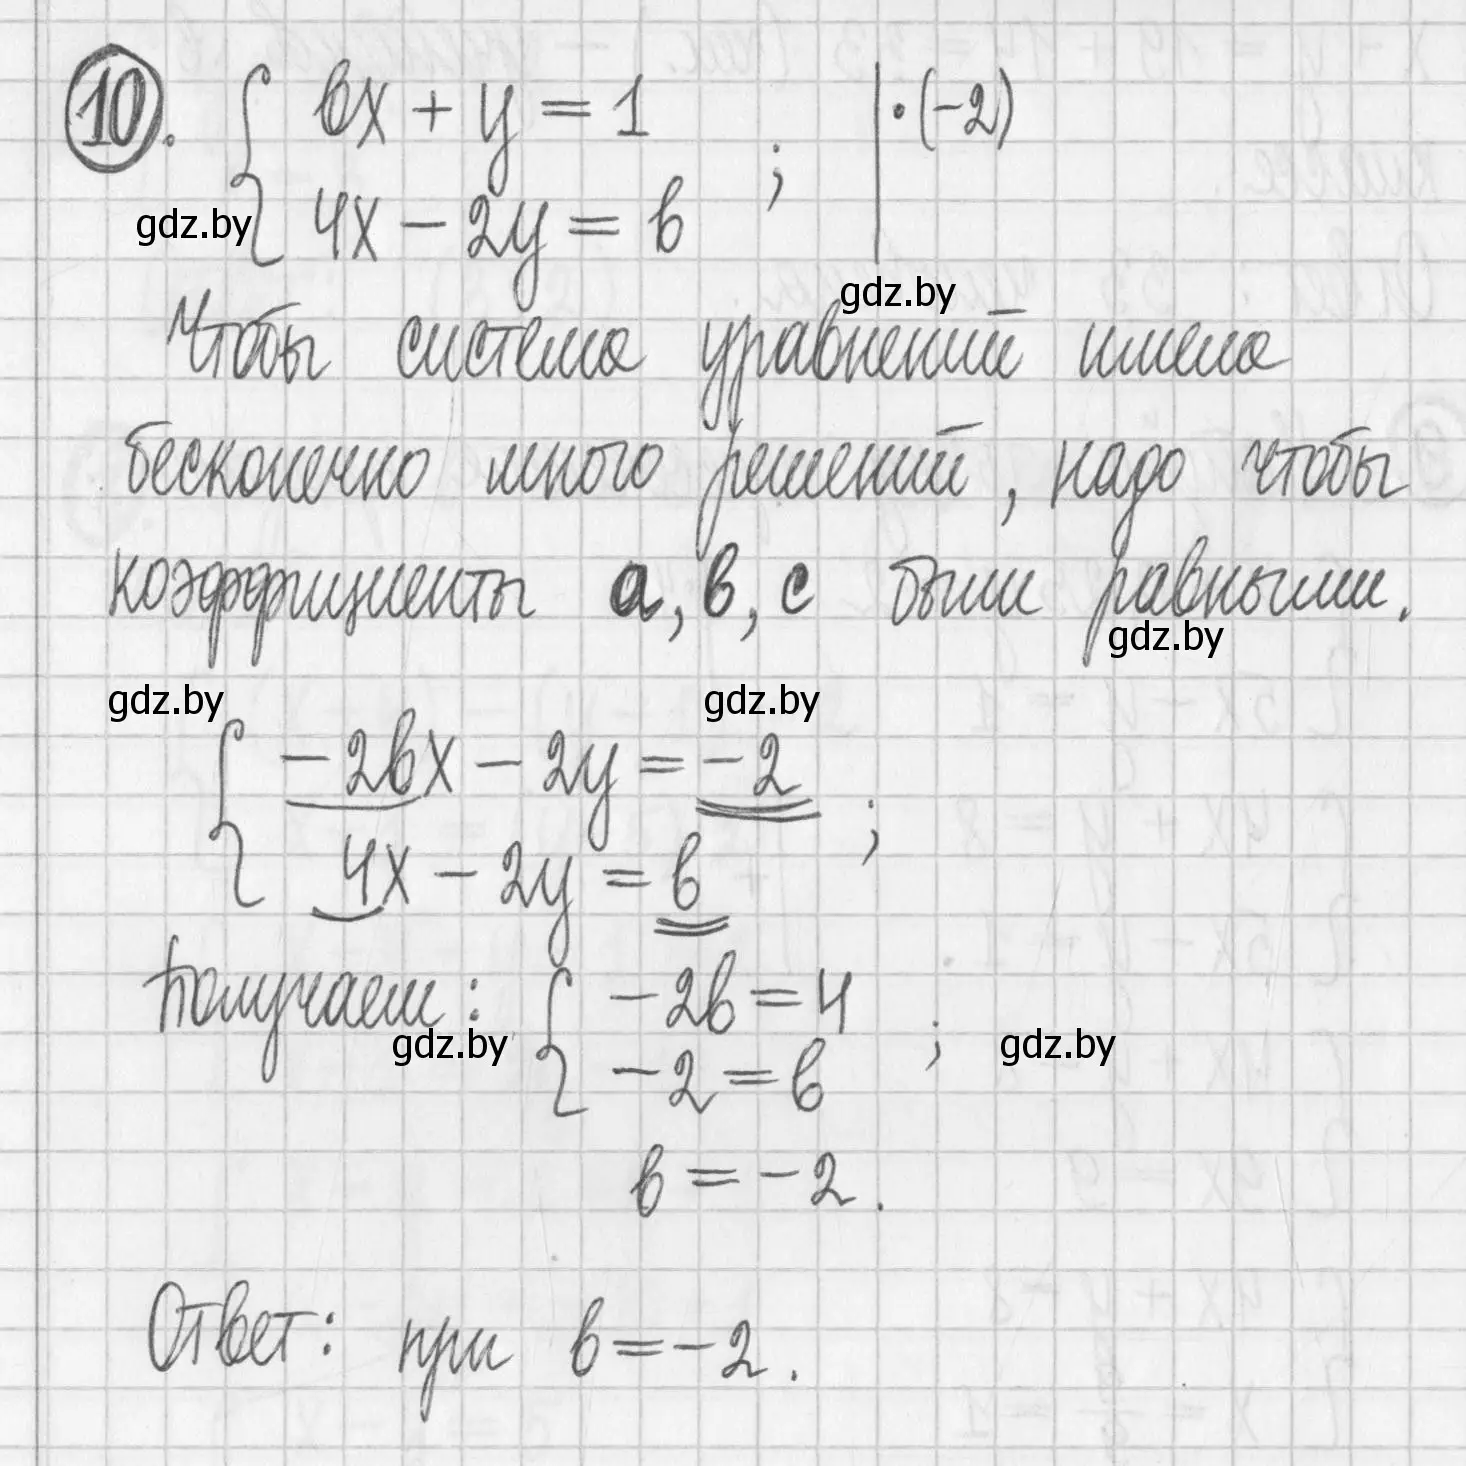 10. { вx + y = 1 ; | · (-2)
gdz.by
4x - 2y = в
gdz.by
Чтобы система уравнений имела
бесконечно много решений, надо чтобы
коэффициенты a, в, c были равными.
gdz.by
gdz.by gdz.by
{ -2вx - 2y = -2 ;
4x - 2y = в
Получаем: { -2в = 4 ;
gdz.by gdz.by
-2 = в
в = -2.
Ответ: при в = -2.